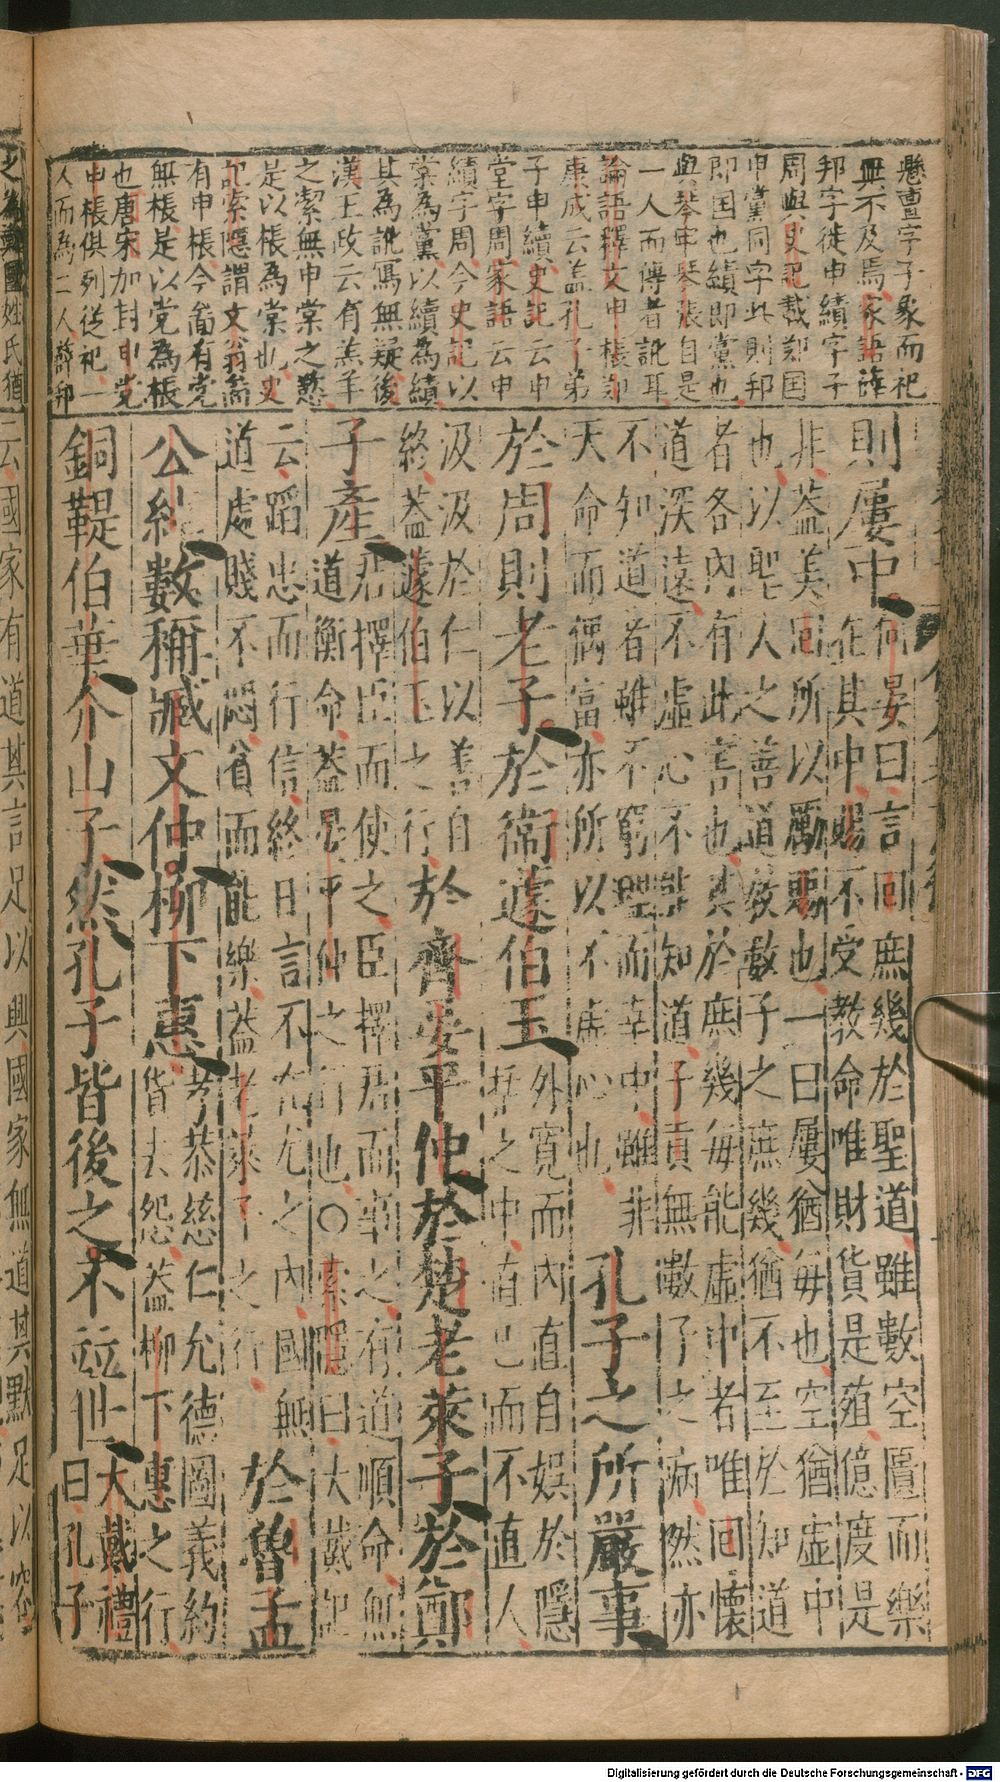 懸亶字子象而祀
無不及焉家語薛
邦字徒申績字子
周與史記載鄭国
申黨同字此則邦
即国也績即黨也
與琴牢琴張自是
一人而傳者訛耳
論語釋文申棖鄭
康成云盖孔子弟
子申續史記云申
堂字周家語云申
續字周今史記以
棠為黨以續為績
其為訛寫無疑後
漢王政云有羔羊
之潔無申棠之慾
是以棖為棠也史
記索隱謂文翁啚
有申棖今啚有党
無棖是以党為棖
也唐宋加封申党
申棖俱列從祀一
人而為二人薛邦
則屢中
何晏曰言回庶幾於聖道雖數空匱而樂
在其中賜不受教命唯財貨是殖億度是
非蓋美回所以勵賜也一曰屢猶每也空猶虛中
也以聖人之善道教數子之庶幾猶不至於知道
者各內有此害也其於庶幾每能虛中者唯回懷
道深遠不虛心不能知道子貢無數子之病然亦
不知道者雖不窮理而幸中雖非
天命而偶富亦所以不虛心也
孔子之所嚴事
於周則老子於衛蘧伯玉
外寬而內直自娛於隱
括之中直己而不直人
汲汲於仁以善自
終蓋蘧伯玉之行
於齊晏平仲於楚老萊子於鄭
子產
君擇臣而使之臣擇君而事之有道順命無
道衡命蓋晏平仲之行也○索隱曰大戴記
云蹈忠而行信終日言不在尤之內國無
道處賤不悶貧而能樂蓋老萊子之行
於魯孟
公綽數稱臧文仲柳下惠
孝恭慈仁允德圖義約
貨去怨蓋柳下惠之行
銅鞮伯華介山子然孔子皆後之不並世
大戴禮
曰孔子
之為鄭國姓氏猶
云國家有道其言足以興國家無道其默足以容
Digitalisierung gefördert durch die Deutsche Forschungsgemeinschaft - DFG